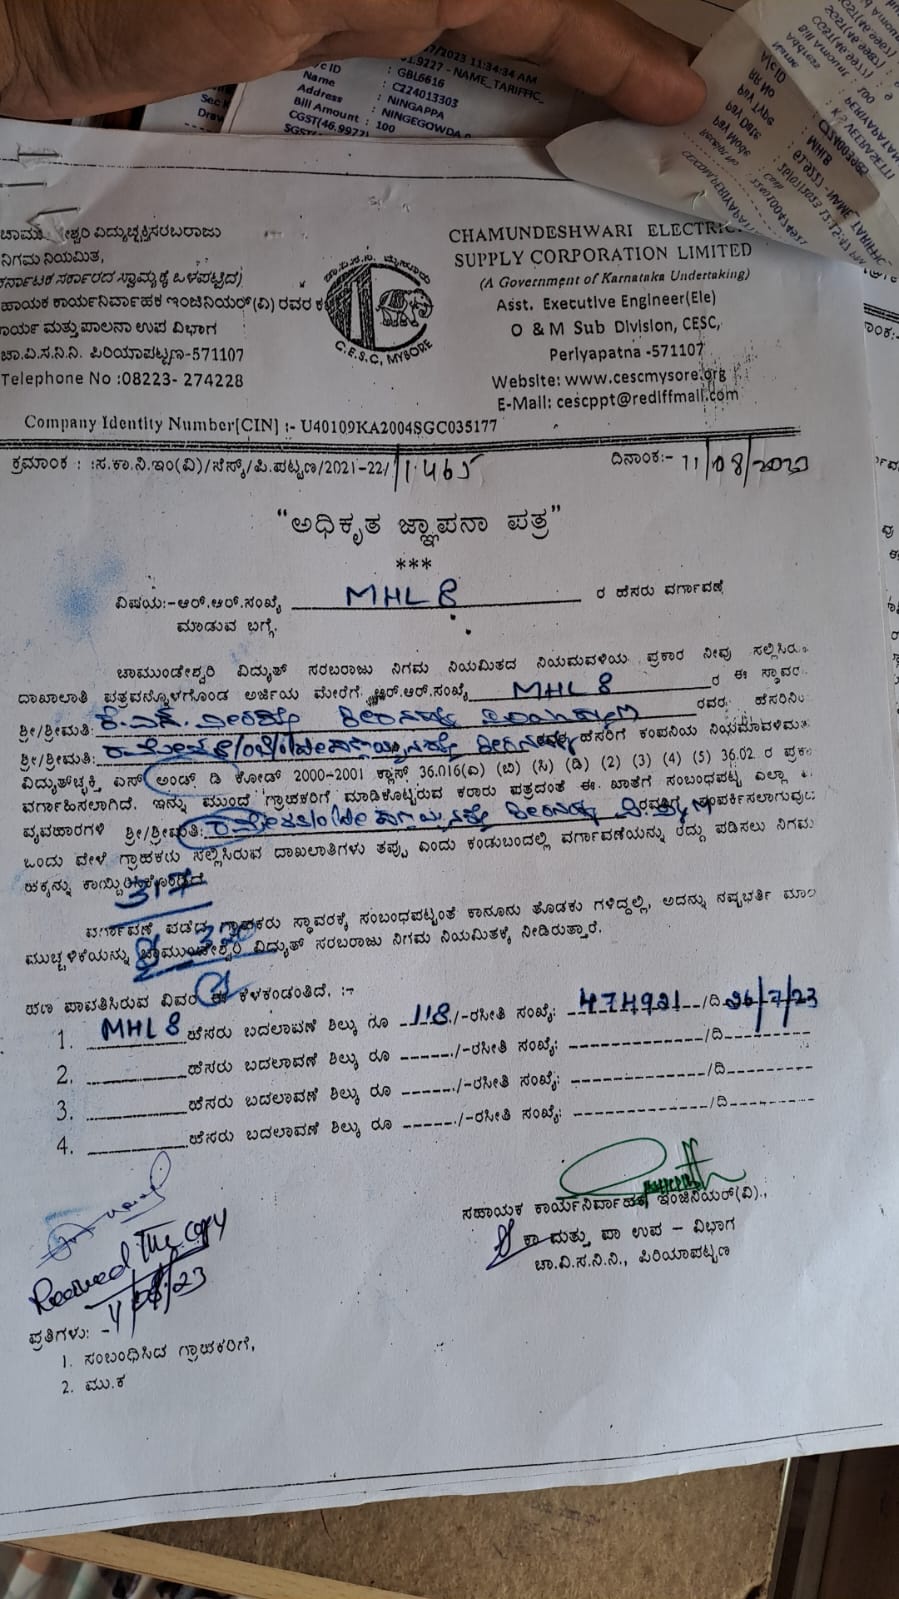 11:34:34 AM
9227 - NAME_TARIFFIC_
c ID : GBL6616
Name : C224013303
Address : NINGAPPA
Bill Amount : NINGEGOWDA
: 100
CGST(46.9977)
SGST(
ವಿದ್ಯುಚ್ಛಕ್ತಿ ಸರಬರಾಜು
ನಿಗಮ ನಿಯಮಿತ,
ಕರ್ನಾಟಕ ಸರ್ಕಾರದ ಸ್ವಾಮ್ಯಕ್ಕೆ ಒಳಪಟ್ಟಿದೆ)
ಹಾಯಕ ಕಾರ್ಯನಿರ್ವಾಹಕ ಇಂಜಿನಿಯರ್(ವಿ) ರವರ ಕ
ಾರ್ಯ ಮತ್ತು ಪಾಲನಾ ಉಪ ವಿಭಾಗ
ಚಾ.ವಿ.ಸ.ನಿ.ನಿ. ಪಿರಿಯಾಪಟ್ಟಣ-571107
Telephone No :08223- 274228
C.E.S.C, MYSORE
CHAMUNDESHWARI ELECTRIC
SUPPLY CORPORATION LIMITED
(A Government of Karnataka Undertaking)
Asst. Executive Engineer(Ele)
O & M Sub Division, CESC,
Periyapatna -571107
Website: www.cescmysore.org
E-Mail: cescppt@rediffmail.com
Company Identity Number[CIN] :- U40109KA2004SGC035177
ಕ್ರಮಾಂಕ : :ಸ.ಕಾ.ನಿ.ಇಂ(ವಿ)/ಸೆಸ್ಕ್/ಪಿ.ಪಟ್ಟಣ/2021-22/ 1465 ದಿನಾಂಕ:- 11/08/2023
“ಅಧಿಕೃತ ಜ್ಞಾಪನಾ ಪತ್ರ”
***
ವಿಷಯ:-ಆರ್.ಆರ್.ಸಂಖ್ಯೆ MHL 8 ರ ಹೆಸರು ವರ್ಗಾವಣೆ
ಮಾಡುವ ಬಗ್ಗೆ.
ಚಾಮುಂಡೇಶ್ವರಿ ವಿದ್ಯುತ್ ಸರಬರಾಜು ನಿಗಮ ನಿಯಮಿತದ ನಿಯಮವಳಿಯ ಪ್ರಕಾರ ನೀವು
ದಾಖಾಲಾತಿ ಪತ್ರವನ್ನೊಳಗೊಂಡ ಅರ್ಜಿಯ ಮೇರೆಗೆ ಆರ್.ಆರ್.ಸಂಖ್ಯೆ MHL 8 ರ ಈ ಸ್ಥಾವರ
ಶ್ರೀ/ಶ್ರೀಮತಿ: ರವರ ಹೆಸರಿನಿಂ
ಶ್ರೀ/ಶ್ರೀಮತಿ: ಹೆಸರಿಗೆ ಕಂಪನಿಯ ನಿಯಮಾವಳಿಮ
ವಿದ್ಯುತ್‌ಚ್ಛಕ್ತಿ ಎಸ್ ಅಂಡ್ ಡಿ ಕೋಡ್ 2000-2001 ಕ್ಲಾಸ್ 36.016(ಎ) (ಬಿ) (ಸಿ) (ಡಿ) (2) (3) (4) (5) 36.02 ರ ಪ್ರಕ
ವರ್ಗಾಹಿಸಲಾಗಿದೆ. ಇನ್ನು ಮುಂದೆ ಗ್ರಾಹಕರಿಗೆ ಮಾಡಿಕೊಟ್ಟಿರುವ ಕರಾರು ಪತ್ರದಂತೆ ಈ ಖಾತೆಗೆ ಸಂಬಂಧಪಟ್ಟ ಎಲ್ಲಾ
ವ್ಯವಹಾರಗಳಿ ಶ್ರೀ/ಶ್ರೀಮತಿ: ಸಂಪರ್ಕಿಸಲಾಗುವುದು
ಒಂದು ವೇಳೆ ಗ್ರಾಹಕರು ಸಲ್ಲಿಸಿರುವ ದಾಖಲಾತಿಗಳು ತಪ್ಪು ಎಂದು ಕಂಡುಬಂದಲ್ಲಿ ವರ್ಗಾವಣೆಯನ್ನು ರದ್ದು ಪಡಿಸಲು ನಿಗಮ
ಹಕ್ಕನ್ನು ಕಾಯ್ದಿರಿಸಿಕೊಂಡಿದೆ
317
ವರ್ಗಾವಣೆ ಪಡೆದ ಗ್ರಾಹಕರು ಸ್ಥಾವರಕ್ಕೆ ಸಂಬಂಧಪಟ್ಟಂತೆ ಕಾನೂನು ತೊಡಕು ಗಳಿದ್ದಲ್ಲಿ, ಅದನ್ನು ನಷ್ಟಭರ್ತಿ
ಮುಚ್ಚಳಿಕೆಯನ್ನು ಚಾಮುಂಡೇಶ್ವರಿ ವಿದ್ಯುತ್ ಸರಬರಾಜು ನಿಗಮ ನಿಯಮಿತಕ್ಕೆ ನೀಡಿರುತ್ತಾರೆ.
ಹಣ ಪಾವತಿಸಿರುವ ವಿವರ ಈ ಕೆಳಕಂಡಂತಿದೆ. :-
1. MHL 8 ಹೆಸರು ಬದಲಾವಣೆ ಶಿಲ್ಕು ರೂ 118./-ರಸೀತಿ ಸಂಖ್ಯೆ: 474921 /ದಿ 26/7/23
2. ಹೆಸರು ಬದಲಾವಣೆ ಶಿಲ್ಕು ರೂ -----./-ರಸೀತಿ ಸಂಖ್ಯೆ: ------------/ದಿ---------
3. ಹೆಸರು ಬದಲಾವಣೆ ಶಿಲ್ಕು ರೂ -----./-ರಸೀತಿ ಸಂಖ್ಯೆ: ------------/ದಿ---------
4. ಹೆಸರು ಬದಲಾವಣೆ ಶಿಲ್ಕು ರೂ -----./-ರಸೀತಿ ಸಂಖ್ಯೆ: ------------/ದಿ---------
ಸಹಾಯಕ ಕಾರ್ಯನಿರ್ವಾಹಕ ಇಂಜಿನಿಯರ್(ವಿ).,
ಕಾ ಮತ್ತು ಪಾ ಉಪ - ವಿಭಾಗ
ಚಾ.ವಿ.ಸ.ನಿ.ನಿ., ಪಿರಿಯಾಪಟ್ಟಣ
Received The Copy
11/08/23
ಪ್ರತಿಗಳು: -
1. ಸಂಬಂಧಿಸಿದ ಗ್ರಾಹಕರಿಗೆ,
2. ಮು.ಕ